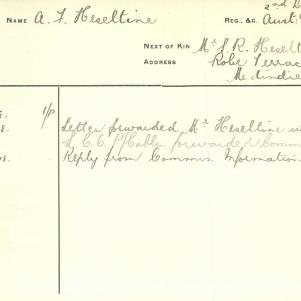 2nd D
NAME A. F. Heseltine REG., &C. Aust:
NEXT OF KIN Mr S. R. Heselt
ADDRESS Robe Terrac
Medindie
E. 1/P Letter forwarded Mr Heseltine
E. L.C.C. P/Cable forwarded Comm
Reply from Commis Information